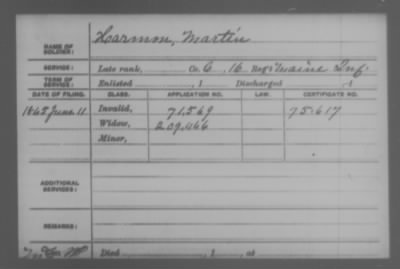 NAME OF SOLDIER: Harmon, Martin
SERVICE: Late rank, Co. C, 16 Reg't Maine Inf.
TERM OF SERVICE: Enlisted , 1 Discharged , 1
DATE OF FILING. CLASS. APPLICATION NO. LAW. CERTIFICATE NO.
1865 June 11 Invalid, 71,569 75.617
Widow, 209,466
Minor,
ADDITIONAL SERVICES:
REMARKS:
Died , 1 , at